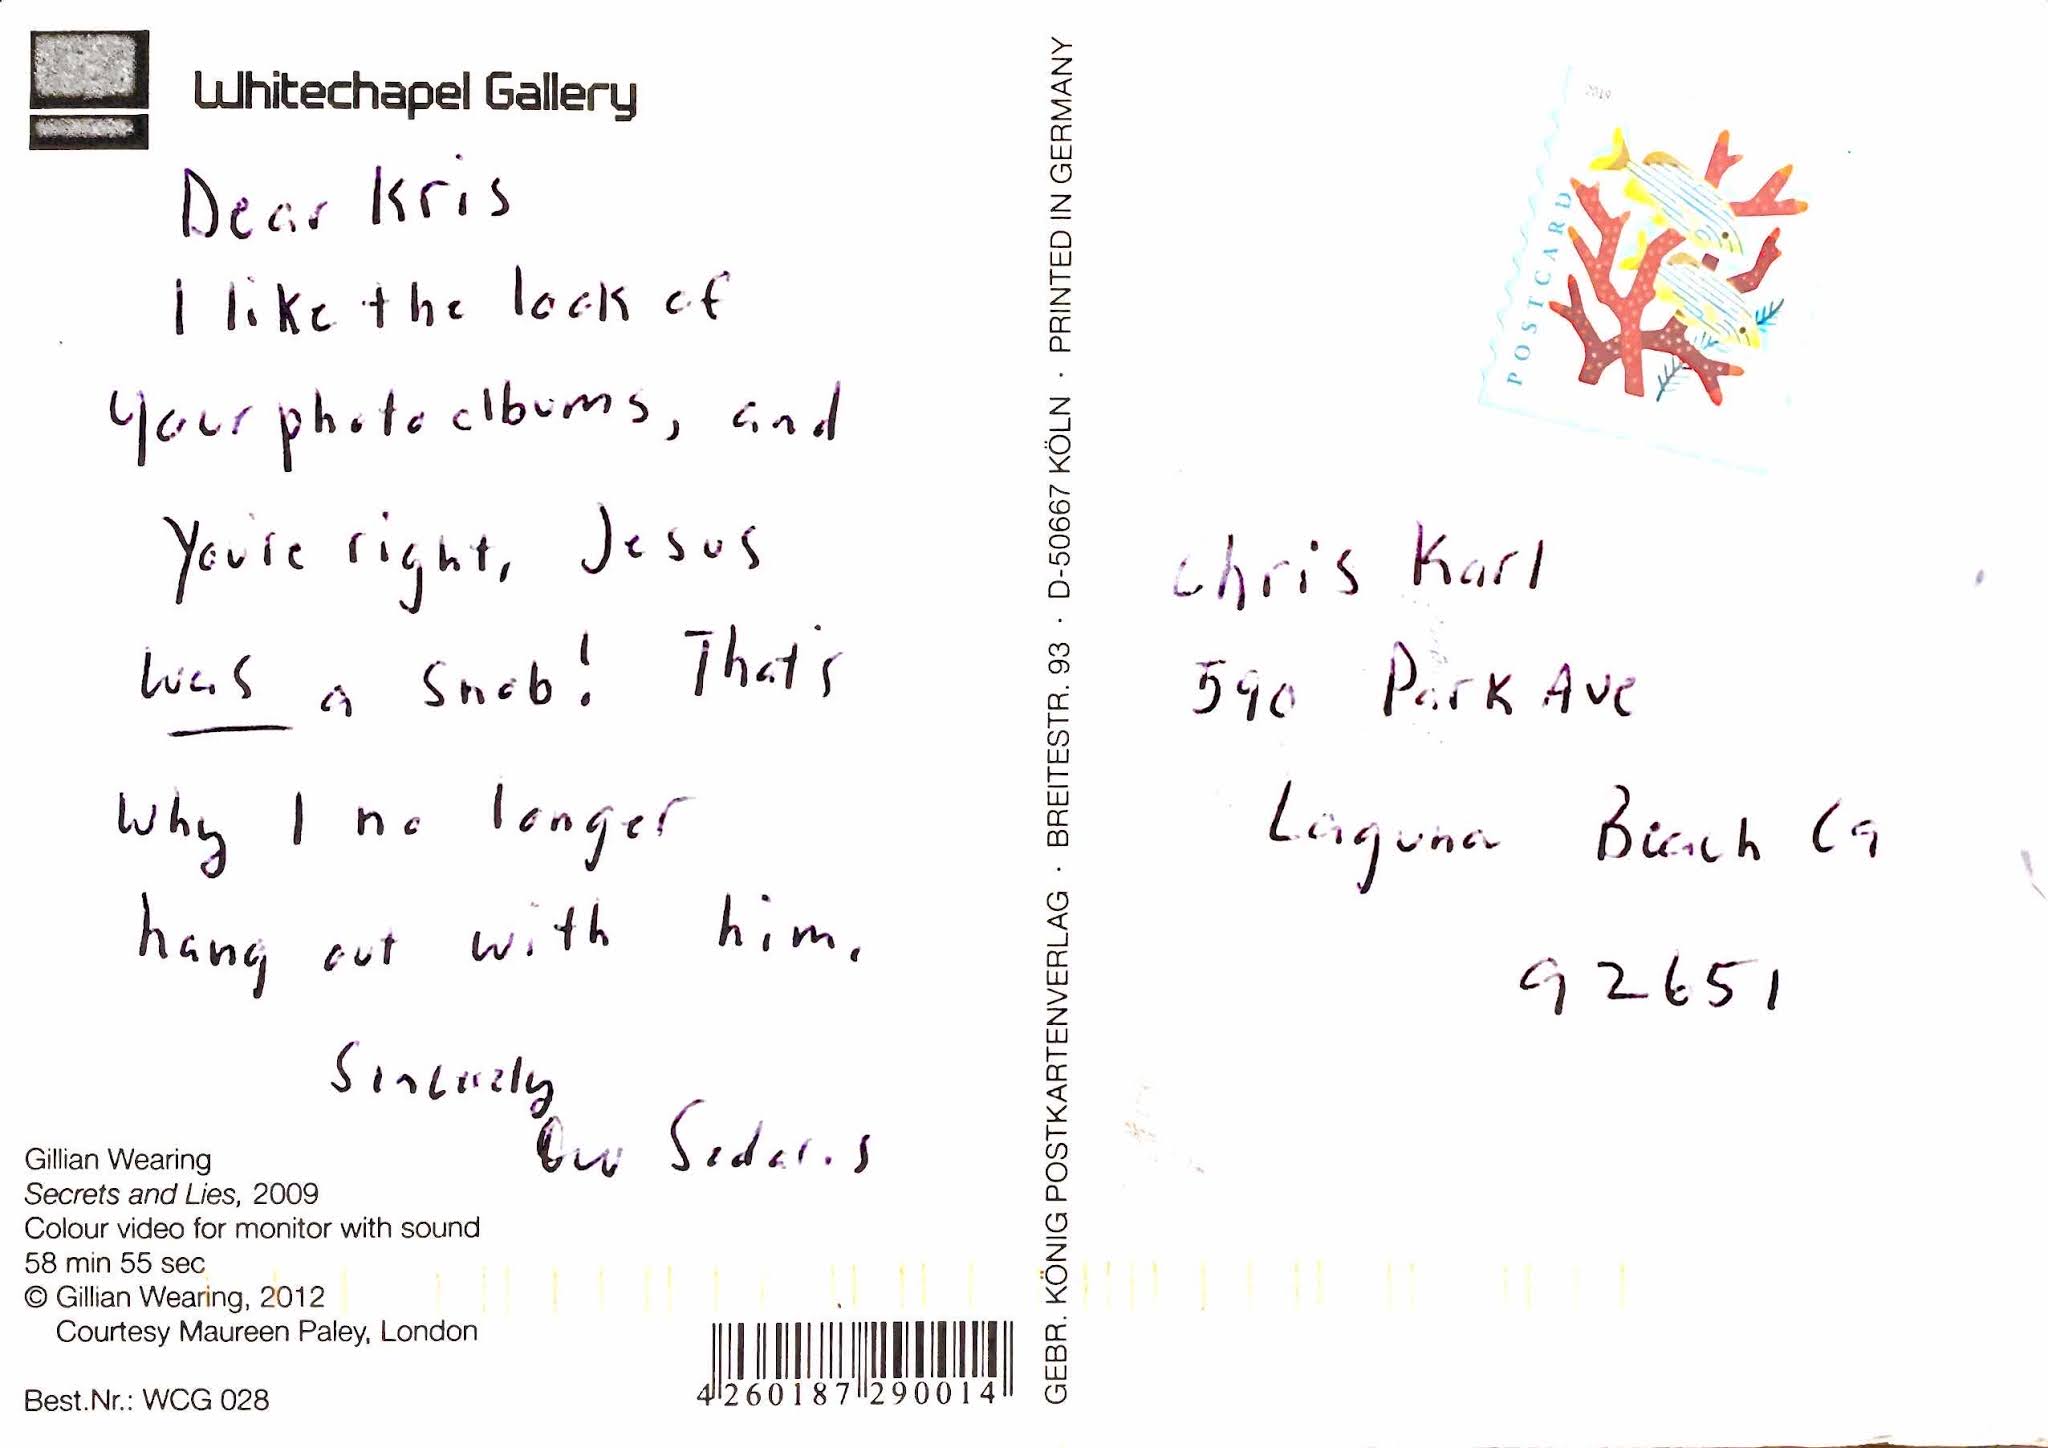 Whitechapel Gallery
Dear Kris
I like the look of
your photo albums, and
You're right, Jesus
was a snob! That's
why I no longer
hang out with him.
Sincerely
Sedaris
Gillian Wearing
Secrets and Lies, 2009
Colour video for monitor with sound
58 min 55 sec
© Gillian Wearing, 2012
Courtesy Maureen Paley, London
Best.Nr.: WCG 028
4 260187 290014
GEBR. KÖNIG POSTKARTENVERLAG · BREITESTR. 93 · D-50667 KÖLN · PRINTED IN GERMANY
2019
POSTCARD
Chris Karl
590 Park Ave
Laguna Beach Ca
92651